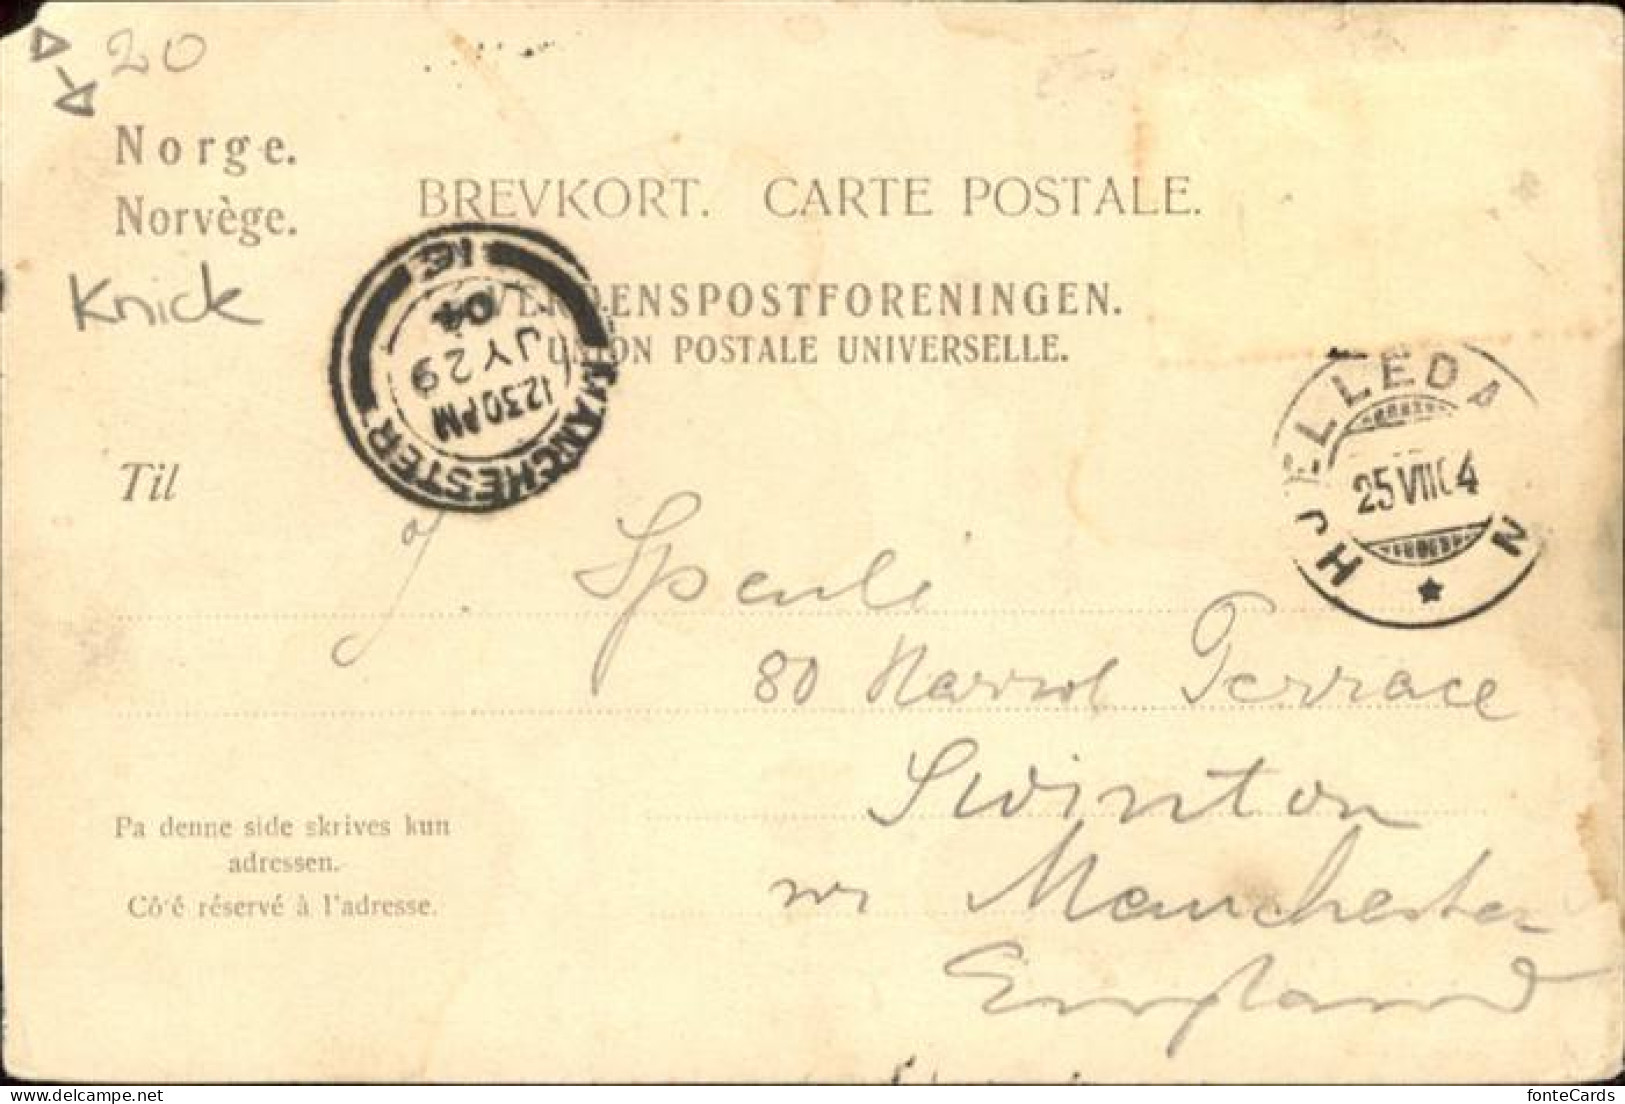 20
Norge.
Norvège.
BREVKORT. CARTE POSTALE.
Knick
VERDENSPOSTFORENINGEN.
UNION POSTALE UNIVERSELLE.
MANCHESTER
1230PM
JY 29
04
HJELLEDALEN
25 VII 04
Til
J.
80 Terrace
Swinton
nr Manchester
England
Pa denne side skrives kun
adressen.
Cô'é réservé à l'adresse.
fonteCards